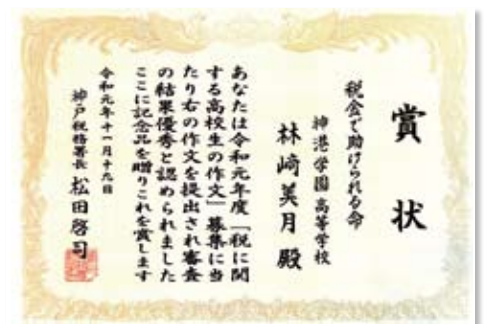 賞状
税金で助けられる命
神港学園高等学校
林崎美月殿
あなたは令和元年度「税に関
する高校生の作文」募集に当
たり右の作文を提出され審査
の結果優秀と認められました
ここに記念品を贈りこれを賞します
令和元年十一月十九日
神戸税務署長 松田啓司